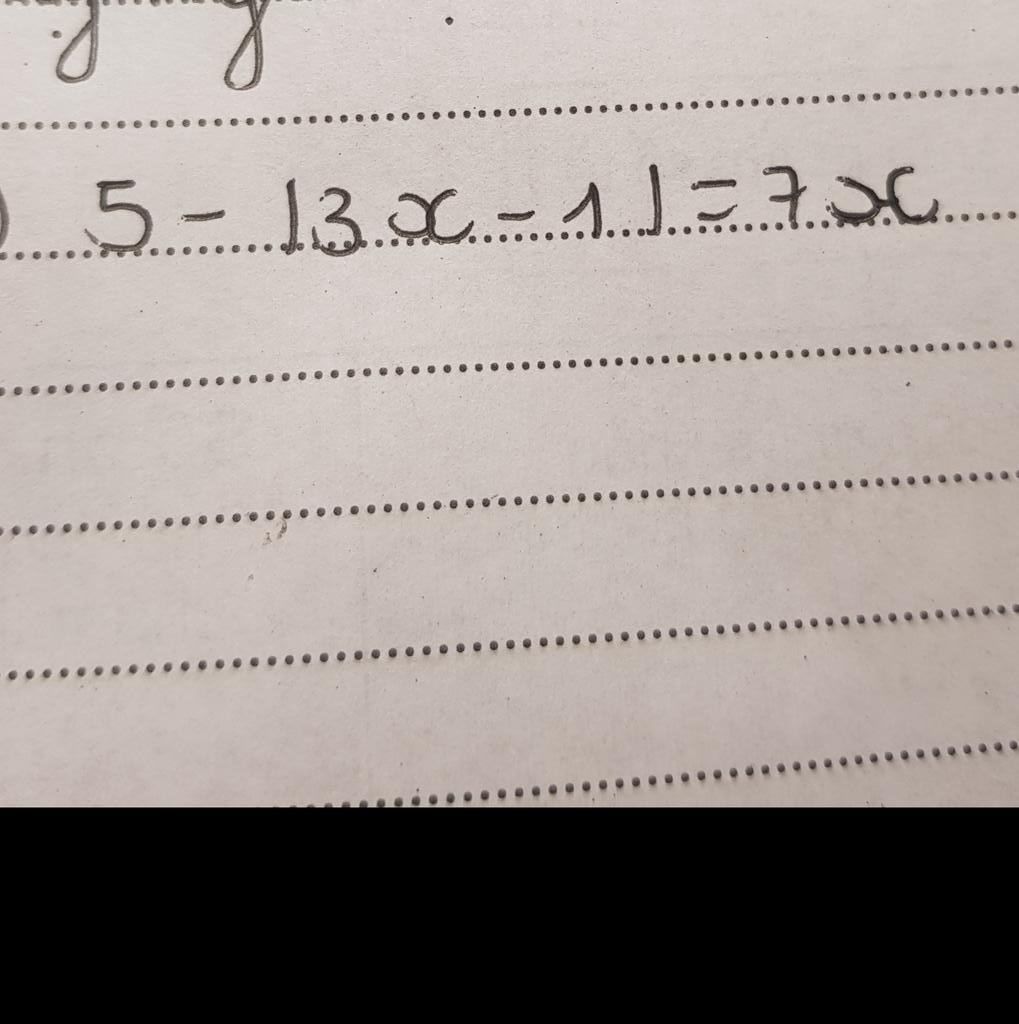 ) 5 - |3x - 1| = 7x